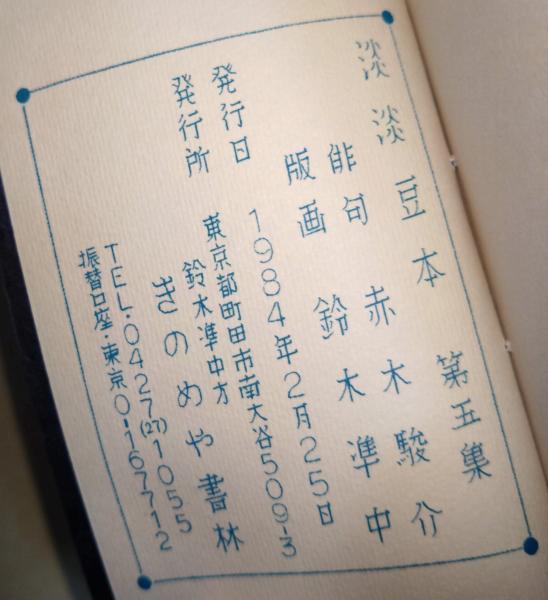 淡淡豆本 第五巣
俳句 赤木駿介
版画 鈴木凖中
発行日 1984年2月25日
発行所 東京都町田市南大谷509-3
鈴木凖中方
きのめや書林
TEL・0427(27)1055
振替口座・東京0-167712